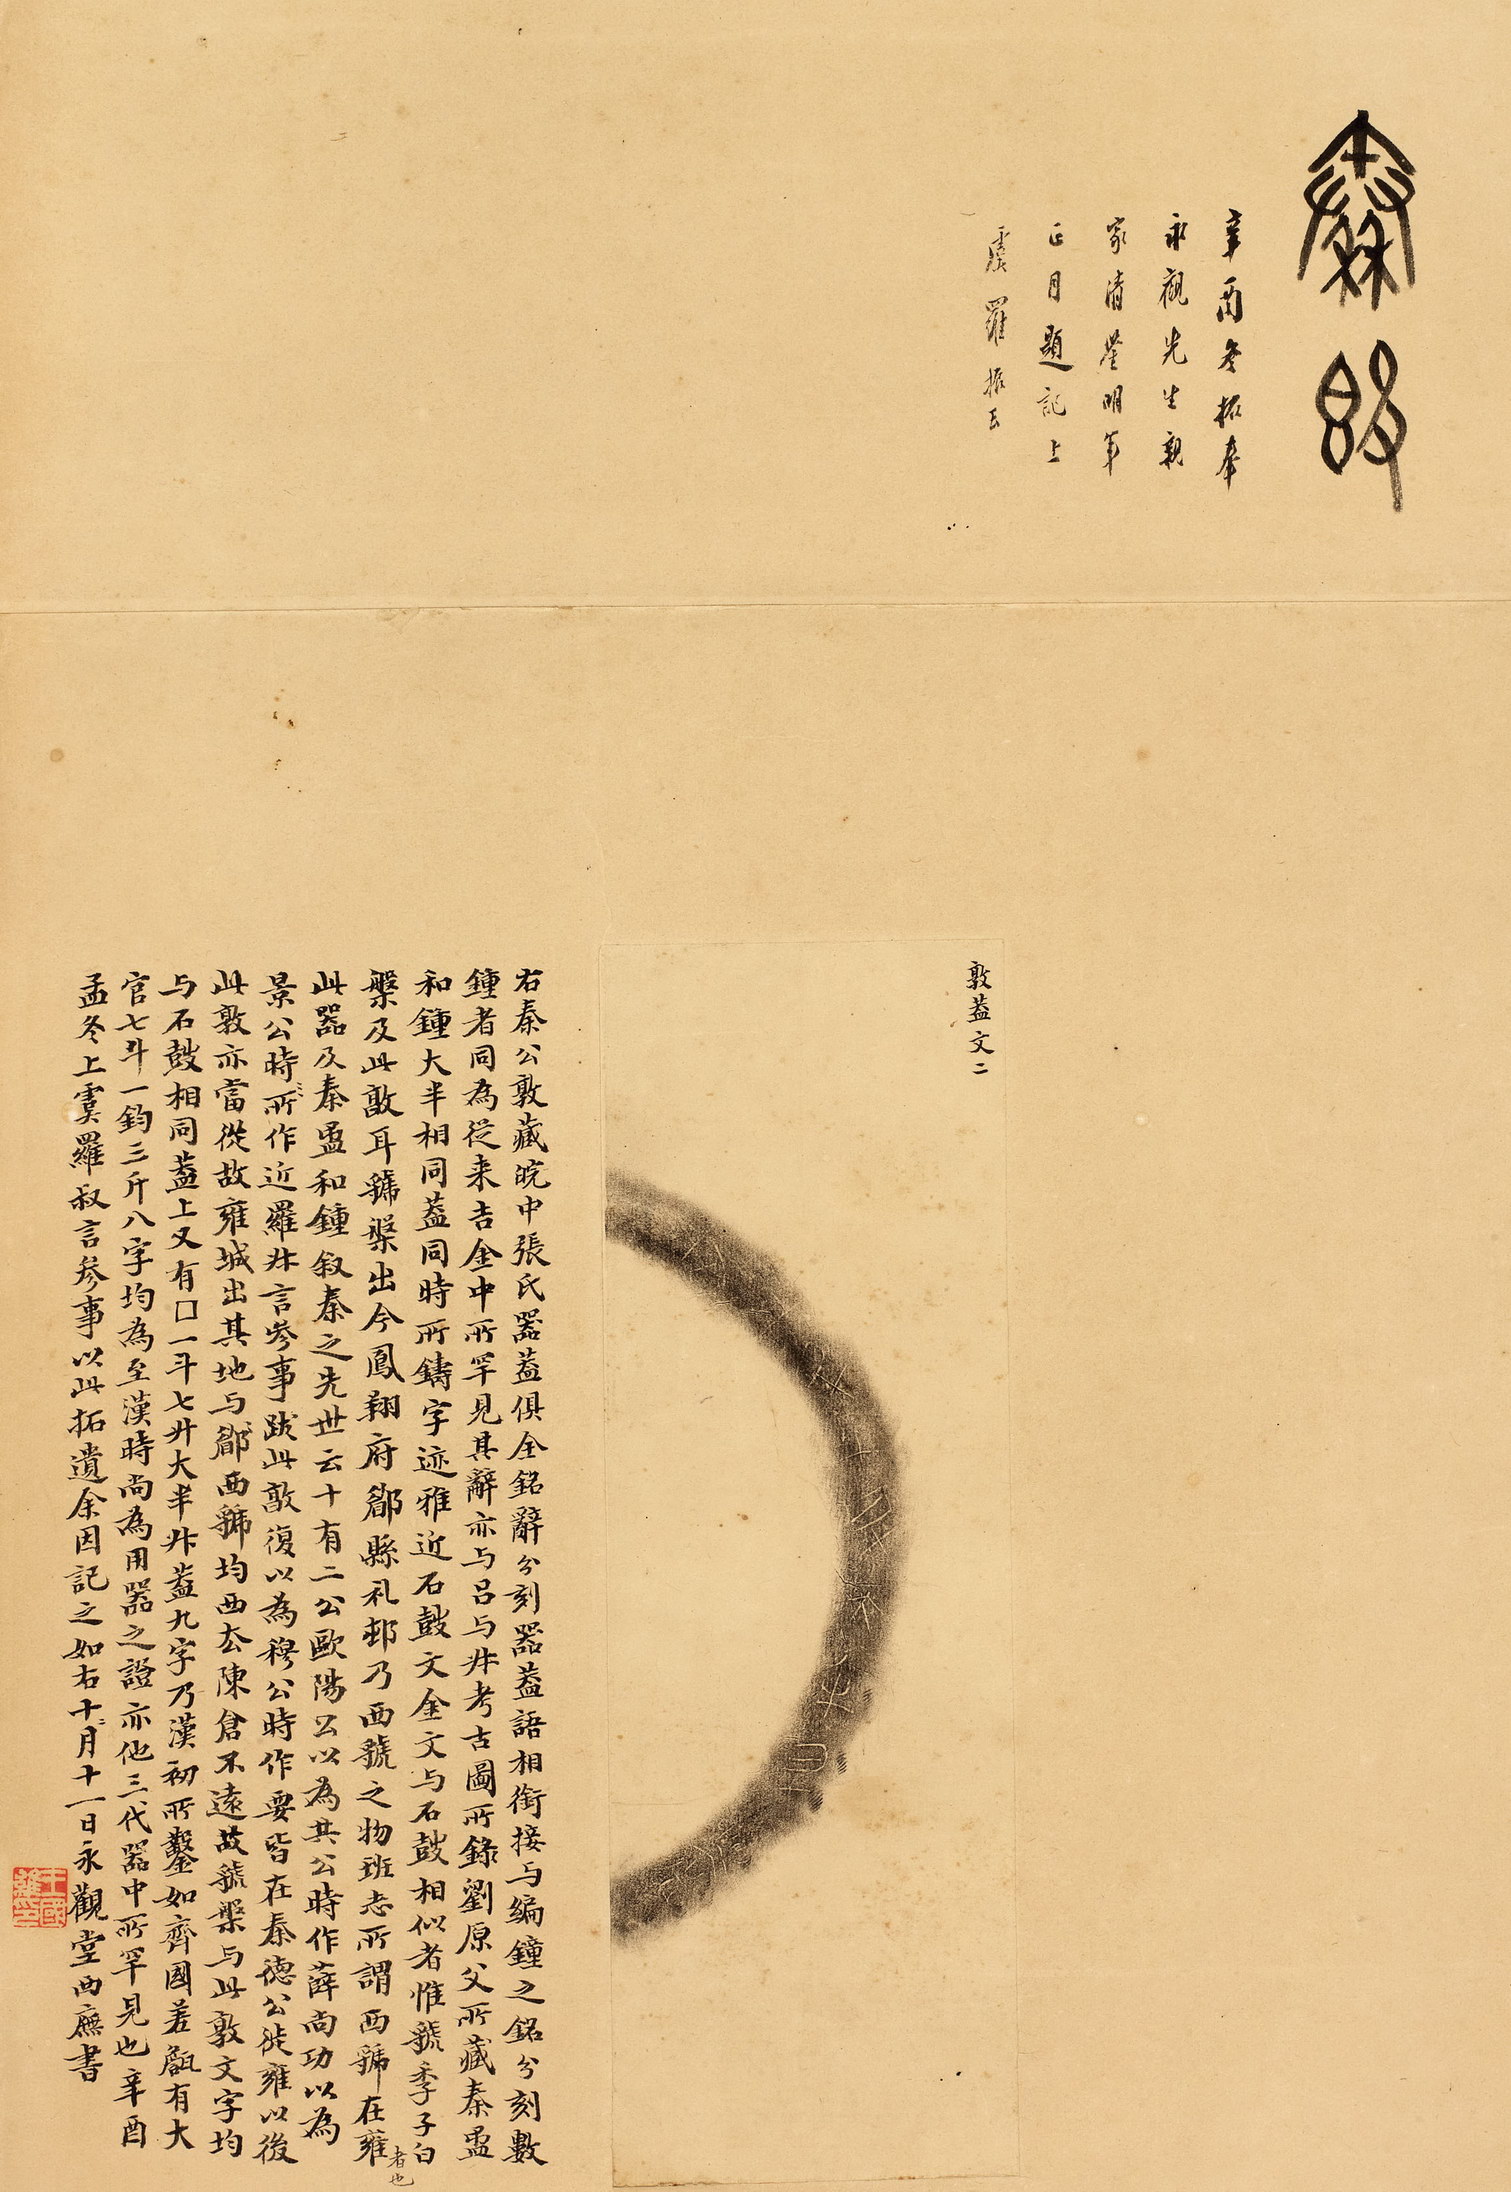 秦敦
辛酉冬拓奉
永觀先生親
家清鑒明年
正月題記上
虞羅振玉
敦蓋文二
右秦公敦藏皖中張氏器蓋俱全銘辭分刻器蓋語相銜接与編鐘之銘分刻數
鍾者同為從来吉金中所罕見其辭亦与呂与叔考古圖所錄劉原父所藏秦盄
和鍾大半相同蓋同時所鑄字迹雅近石鼓文金文与石鼓相似者惟虢季子白
槃及此敦耳虢槃出今鳳翔府郿縣礼邨乃西虢之物班志所謂西虢在雍者也
此器及秦盄和鍾叙秦之先世云十有二公歐陽公以為共公時作薛尚功以為
景公時所作近羅叔言参事跋此敦復以為穆公時作要皆在秦德公徙雍以後
此敦亦當從故雍城出其地与郿西虢均西去陳倉不遠故虢槃与此敦文字均
与石鼓相同蓋上又有囗一斗七升大半升蓋九字乃漢初所鑿如齊國差𦉜有大
官七斗一鈞三斤八字均為至漢時尚為用器之證亦他三代器中所罕見也辛酉
孟冬上虞羅叔言参事以此拓遺余因記之如右十月十一日永觀堂西廡書
王國維印